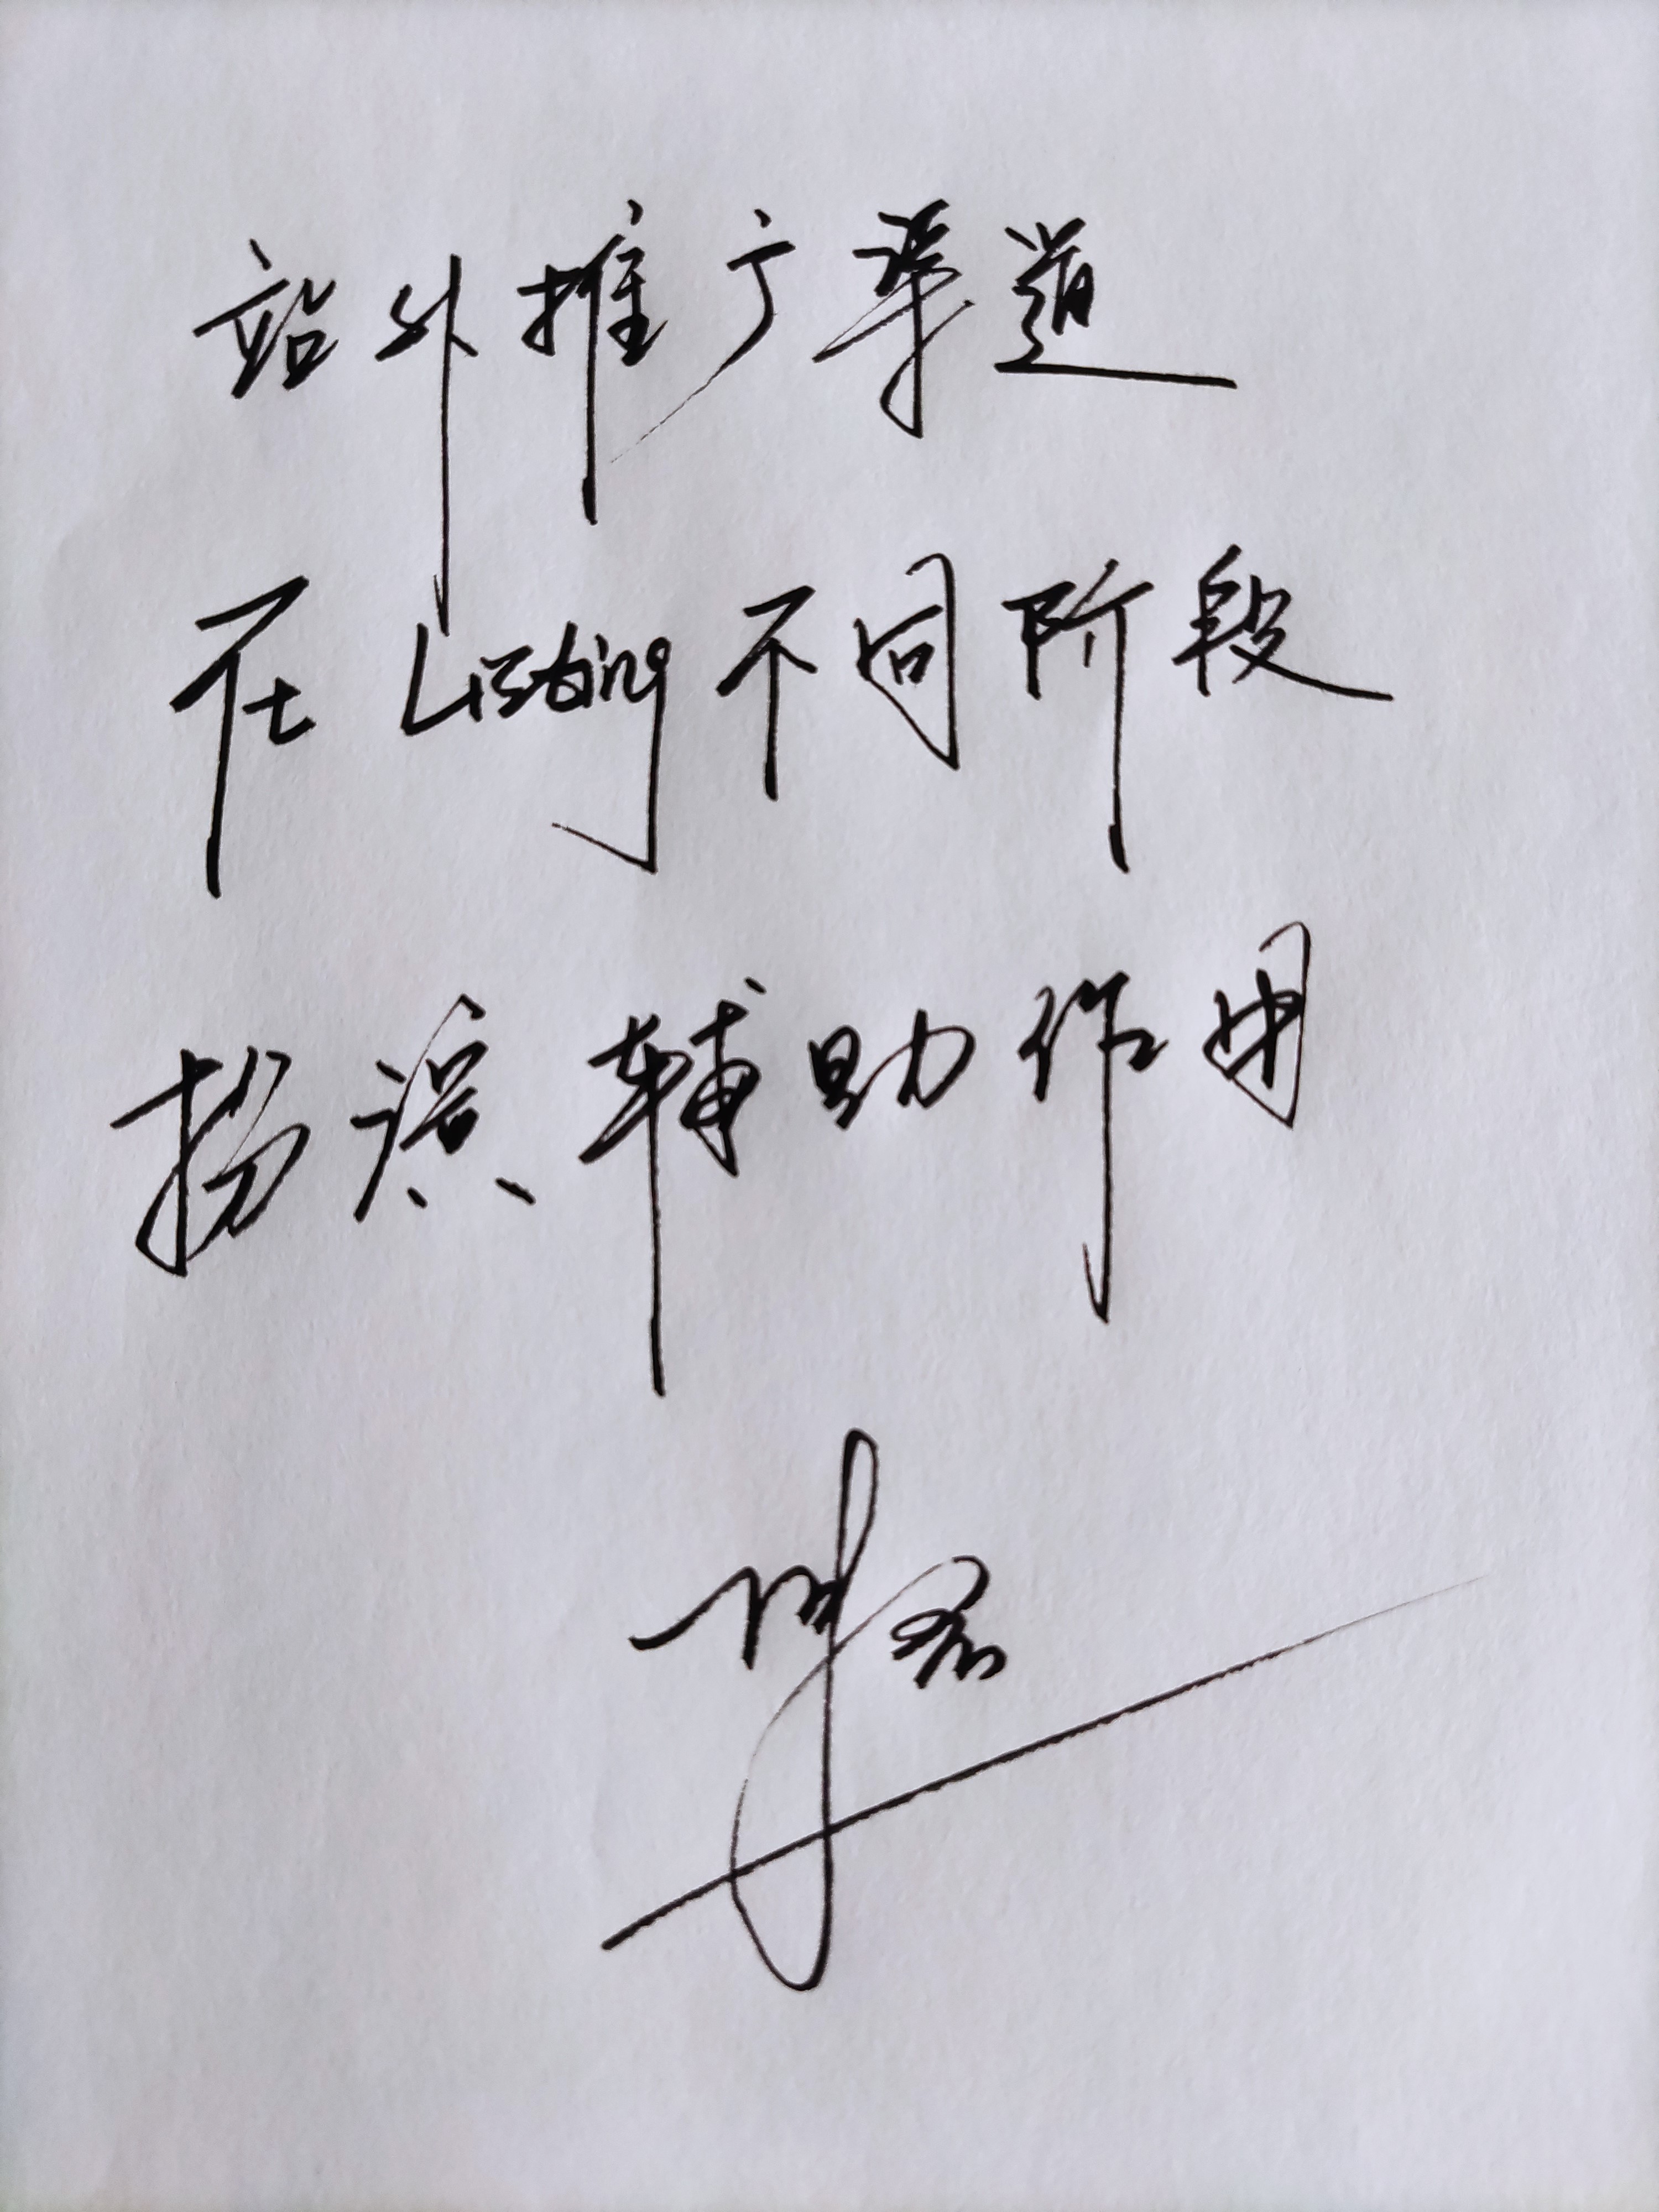 站外推广渠道
在Listing不同阶段
扮演辅助作用